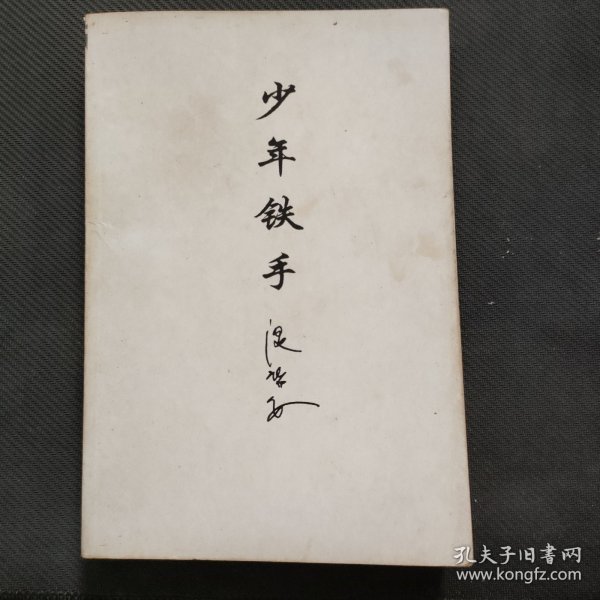 少年铁手
温瑞安
孔夫子旧書网
www.kongfz.com